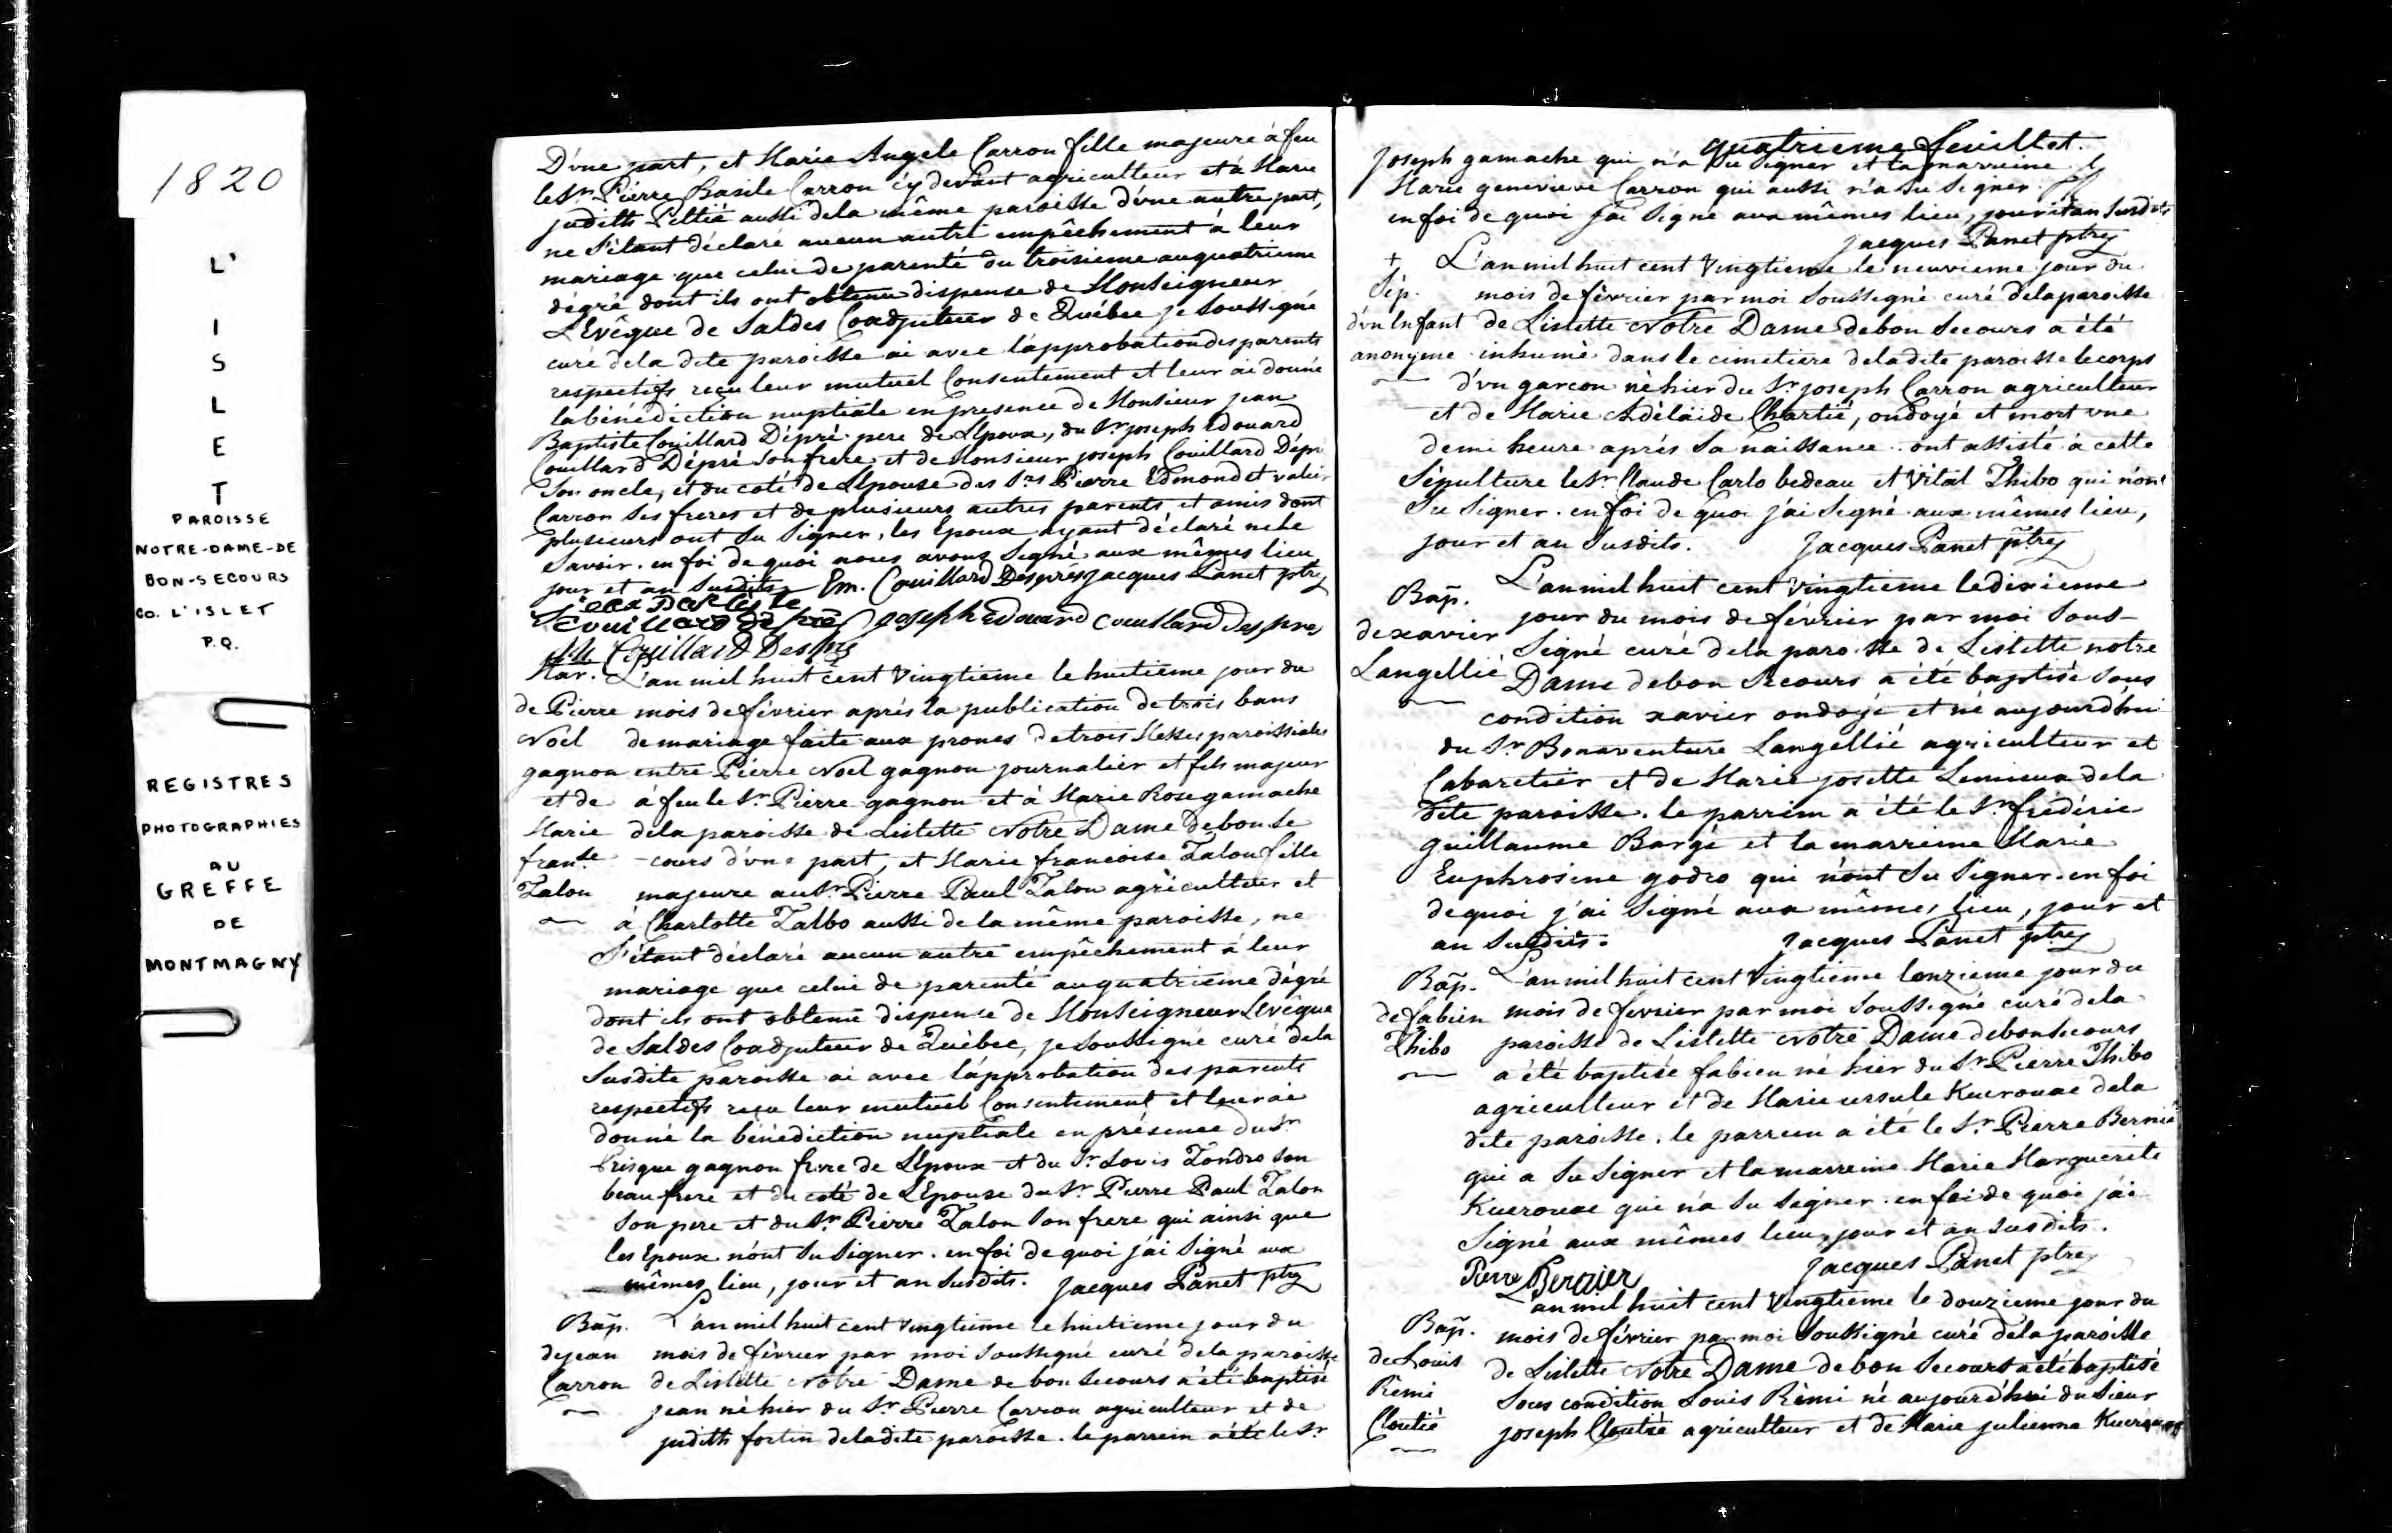 1820
L'
I
S
L
E
T
PAROISSE
NOTRE-DAME-DE
BON-SECOURS
Co. L'ISLET
P.Q.
REGISTRES
PHOTOGRAPHIES
AU
GREFFE
DE
MONTMAGNY
D'une part, et Marie Angele Carron fille majeure à feu
le Sr. Pierre Basile Carron cy devant agriculteur et à Marie
judith Peltié aussi dela même paroisse d'une autre part,
ne s'étant déclaré aucun autre empêchement à leur
mariage que celui de parenté du troisieme au quatrieme
dégré dont ils ont obtenu dispense de Monseigneur
L'Evêque de Saldes Coadjuteur de Québec je soussigné
curé dela dite paroisse ai avec l'approbation des parents
respectifs reçu leur mutuel Consentement et leur ai donné
la bénédiction nuptiale en presence de Monsieur jean
Baptiste Couillard Dépré pere de L'Epoux, du Sr joseph Edouard
Couillard Dépré son frere et de Monsieur joseph Couillard Dépré
son oncle, et du coté de L'Epouse des Srs Pierre Edmond et valié
Carron ses freres et de plusieurs autres parents et amis dont
plusieurs ont su signer, les Epoux ayant déclaré ne le
savoir. en foi de quoi nous avons signé aux mêmes lieu
jour et an susdits Em. Couillard Després Jacques Panet ptre
jean Baptiste
Couillard Després joseph Edouard Couillard Despres
Couillard Després
Mar. L'an mil huit cent vingtieme le huitieme jour du
de Pierre mois de février après la publication de trois bans
Noel de mariage faite aux prones de trois Messes paroissiales
gagnon entre Pierre Noel gagnon journalier et fils majeur
et de à feu le Sr. Pierre gagnon et à Marie Rose gamache
Marie dela paroisse de Lislette Notre Dame de bon se
franse -cours d'une part, et Marie francoise Talon fille
Talon majeure au Sr. Pierre Paul Talon agriculteur et
à Charlotte Talbo aussi de la même paroisse, ne
s'étant déclaré aucun autre empêchement à leur
mariage que celui de parenté au quatrieme dégré
dont ils ont obtenu dispense de Monseigneur L'Evêque
de Saldes Coadjuteur de Québec, je soussigné curé dela
susdite paroisse ai avec l'approbation des parents
respectifs reçu leur mutuel Consentement et leur ai
donné la bénédiction nuptiale en présence du Sr
Prisque gagnon frere de L'Epoux et du Sr. Louis son
beau frere et du coté de L'Epouse du Sr. Pierre Paul Talon
son pere et du Sr. Pierre Talon son frere qui ainsi que
les Epoux n'ont su signer. en foi de quoi j'ai signé aux
mêmes lieu, jour et an susdits. Jacques Panet ptre
Bap. L'an mil huit cent vingtieme le huitieme jour du
de jean mois de février par moi soussigné curé dela paroisse
Carron de Lislette Notre Dame de bon secours a été baptisé
jean né hier du Sr Pierre Carron agriculteur et de
judith fortin dela dite paroisse. le parrein a été le Sr
quatrieme feuillet.
joseph gamache qui n'a su signer et la marreine
Marie genevieve Carron qui aussi n'a su signer.
en foi de quoi j'ai signé aux mêmes lieu, jour et an susdits
Jacques Panet ptre
+ L'an mil huit cent vingtieme le neuvieme jour du
Sép. mois de février par moi soussigné curé dela paroisse
d'un Enfant de Lislette Notre Dame de bon secours a été
anonyme inhumé dans le cimetiere dela dite paroisse le corps
d'un garcon né hier du Sr. joseph Carron agriculteur
et de Marie Adélaide Chartié, ondoyé et mort une
demi heure après sa naissance. ont assisté à cette
sépulture le Sr. Claude Carlo bedeau et Vital Thibo qui n'ont
su signer. en foi de quoi j'ai signé aux mêmes lieu,
jour et an susdits. Jacques Panet ptre
Bap. L'an mil huit cent vingtieme le dixieme
de xavier jour du mois de février par moi sous-
Langellié signé curé dela paroisse de Lislette notre
Dame de bon secours a été baptisé sous
condition xavier ondoyé et né aujourd'hui
du Sr. Bonaventure Langellié agriculteur et
Cabaretier et de Marie josette Lemieux dela
dite paroisse. le parrein a été le Sr. fréderic
guillaume Bargé et la marreine Marie
Euphrosine godro qui n'ont su signer. en foi
de quoi j'ai signé aux mêmes lieu, jour et
an susdits. Jacques Panet ptre
Bap. L'an mil huit cent vingtieme l'onzieme jour du
de fabien mois de fevrier par moi soussigné curé dela
Thibo paroisse de Lislette Notre Dame de bon secours
a été baptisé fabien né hier du Sr. Pierre Thibo
agriculteur et de Marie ursule Kuerouac dela
dite paroisse. le parrein a été le Sr. Pierre Bernié
qui a su signer et la marreine Marie Marguerite
Kuerouac qui n'a su signer. en foi de quoi j'ai
signé aux mêmes lieu, jour et an susdits.
Pierre Bernier Jacques Panet ptre
L'an mil huit cent vingtieme le douzieme jour du
Bap. mois de février par moi soussigné curé dela paroisse
de Louis de Lislette Notre Dame de bon secours a été baptisé
Rémi sous condition Louis Rémi né aujourd'hui du Sieur
Cloutié joseph Cloutié agriculteur et de Marie julienne Kuerouac